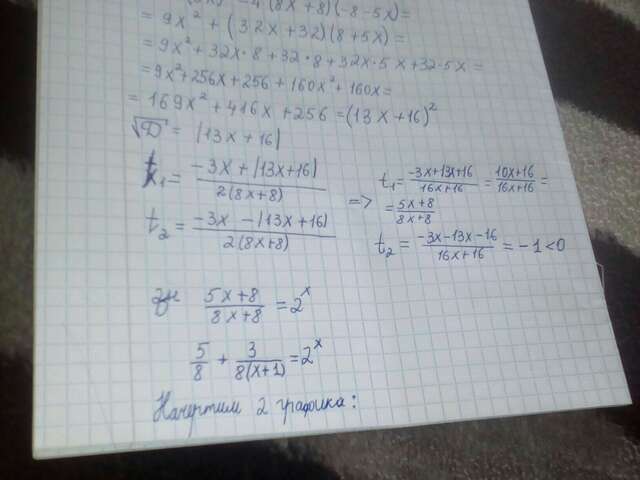 -4(8x+8)(-8-5x)=
=9x²+(32x+32)(8+5x)=
=9x²+32x·8+32·8+32x·5x+32·5x=
=9x²+256x+256+160x²+160x=
=169x²+416x+256=(13x+16)²
√D=|13x+16|
t₁=(-3x+|13x+16|)/(2(8x+8))
t₂=(-3x-|13x+16|)/(2(8x+8))
=>
t₁=(-3x+13x+16)/(16x+16)=(10x+16)/(16x+16)=
=(5x+8)/(8x+8)
t₂=(-3x-13x-16)/(16x+16)=-1<0
(5x+8)/(8x+8)=2ˣ
5/8+3/(8(x+1))=2ˣ
Начертим 2 графика: